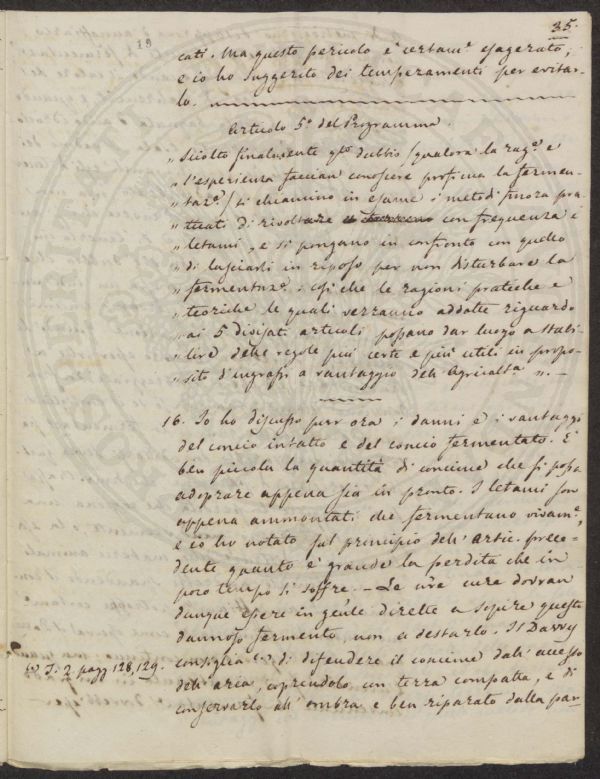 35.
cati. Ma questo pericolo è certam.e esagerato,
e io ho suggerito dei temperamenti per evitar-
lo.
Articolo 5.o del Programma.
„ Sciolto finalmente q.to dubbio (qualora la rag.e e
„ l'esperienza faccian conoscere proficua la fermen-
„ taz.e) si chiamino in esame i metodi finora pra-
„ ticati di rivoltare il con frequenza i
„ letami, e si pongano in confronto con quello
„ di lasciarli in riposo per non disturbare la
„ fermentaz.e: così che le ragioni pratiche e
„ teoriche le quali verranno addotte riguardo
„ ai 5 divisati articoli possano dar luogo a stabi-
„ lire delle regole più certe e più utili in propo-
„ sito d'ingrassi a vantaggio dell'Agricolt.a „. —
16. Io ho discusso per ora i danni e i vantaggi
del concio intatto e del concio fermentato. È
ben piccola la quantità di concime che si possa
adoprare appena sia in pronto. I letami son
appena ammontati che fermentano vivam.e,
e io ho notato sul principio dell'artic. prece-
dente quanto è grande la perdita che in
poco tempo si soffre. — Le n're cure dovran
dunque essere in gen'le dirette a sopire questo
dannoso fermento, non a destarlo. Il Davvy
consiglia di difendere il concime dall'accesso
T. 2. pagg 128, 129.
dell'aria, coprendolo con terra compatta, e di
conservarlo all'ombra e ben riparato dalla par-